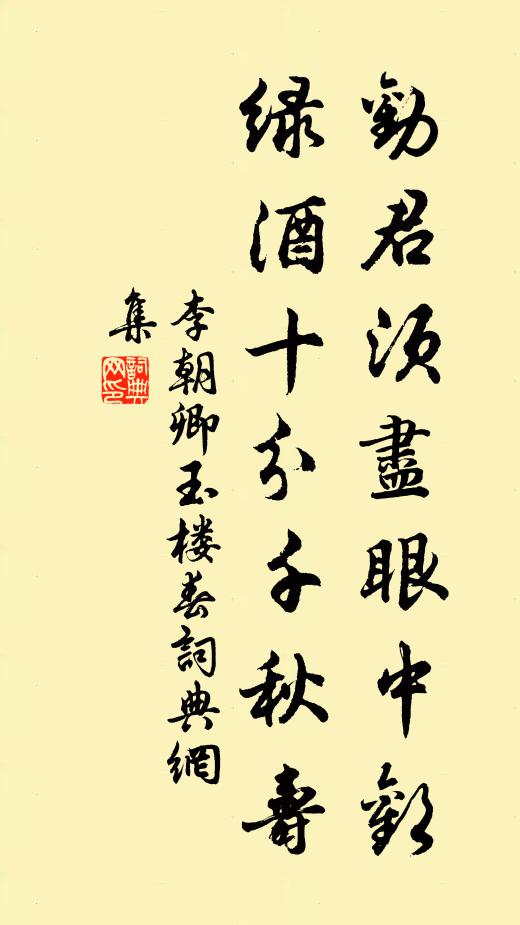 勸君須盡眼中歡
綠酒十分千秋壽
李朝卿玉楼春詞典網
集
詞典
网印